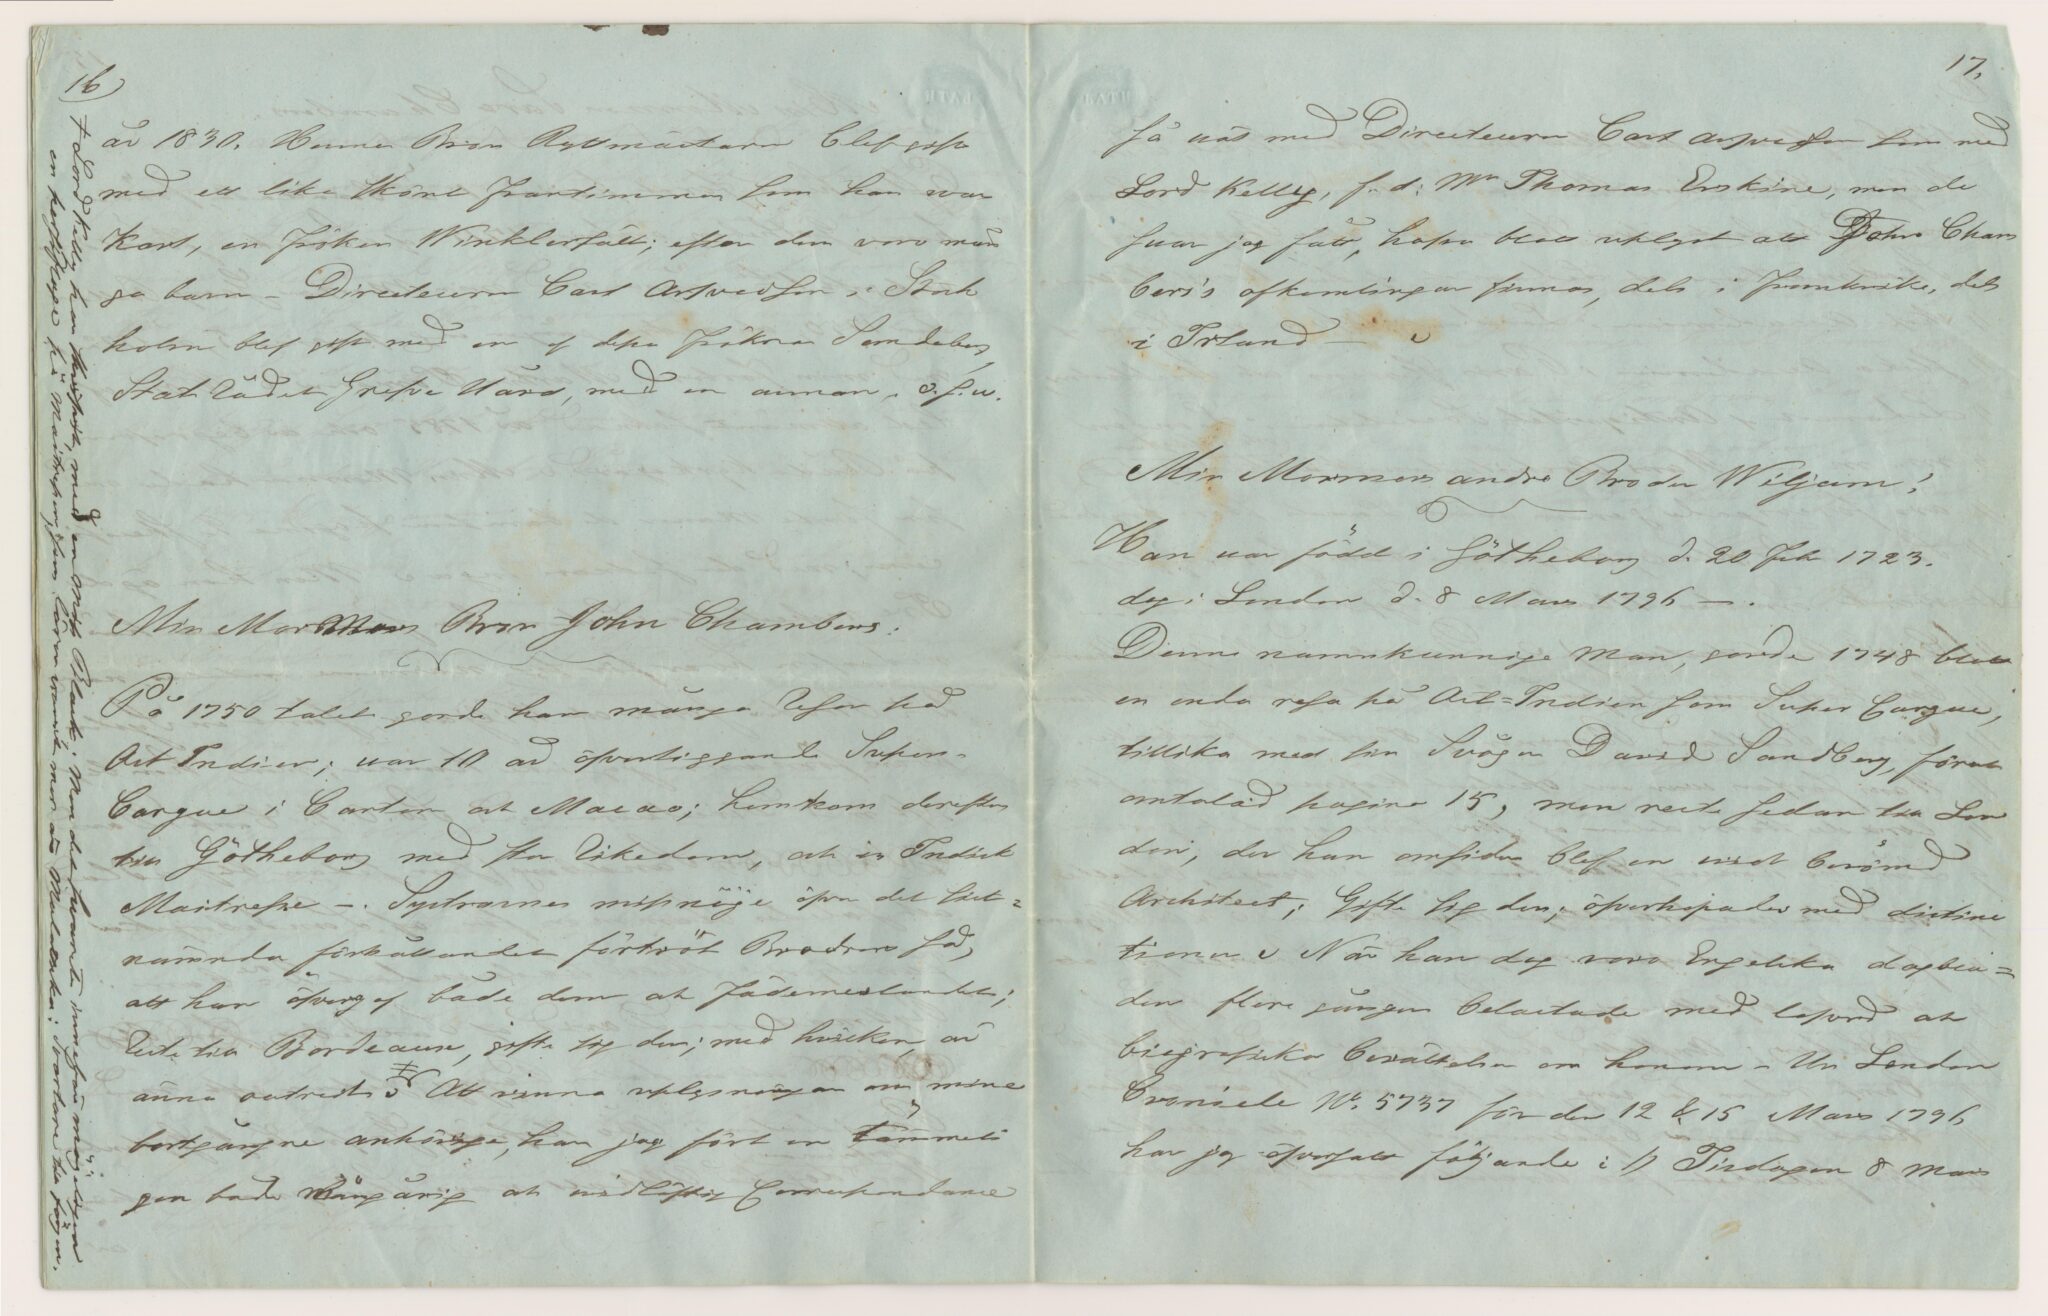 16)
år 1830. Hennes Bror Ryttmästarn blef gift
med ett lika skönt fruntimmer som han var
karl, en fröken Winklerfält; efter dem voro mån
ga barn – Directeurn Carl Arfvedson i Stock
holm blef gift med en af dessa fröknar Sandeberg,
Stats Rådet Grefve Mörd, med en annan, o.s.v.
Min Mormors Bror John Chambers.
På 1750 talet gorde han många Resor på
Ost Indien; var 10 år öfverliggande Super-
Cargue i Canton och Macao; hemkom derefter
till Götheborg med stor Rikedom, och en Indisk
Maitresse –. Systrarnes missnöje öfver det sist=
nämnda förhållandet förtröt Brodren så,
att han öfvergaf både dem och Fäderneslandet;
Reste till Bordeaux, gifte sig der; med hvilken, är
ännu outredt ‡ Att vinna uplysningar om mine
bortgångne anhörige, har jag fört en tämmeli
gen både mångårig och vidlöftig Correspondance
‡ Lord Kelly har trott, med en Miss Black: Men det hvarest innefrån möjligen
en hertiginna på Maitressen, som lären varit mer än Mulatska: Svartare till färgen.
17.
så väl med Directeurn Carl Arfvedson som med
Lord Kelly, f.d. Mr Thomas Erskine, men de
svar jag fått, hafva blott uplyst att John Cham
bers's afkomlingar finnas, dels i Frankrike, dels
i Irland –
Min Mormors andre Broder Wiljam!
Han var född i Götheborg d. 20 Feb 1723.
dog i London d. 8 Mars 1796 –.
Denne namnkunnige Man, gorde 1748 blott
en enda resa på Ost=Indien som Super Cargue,
tillika med sin Svåger David Sandberg, förut
omtalad pagina 15, men reste sedan till Lon
don, der han omsider blef en vidt berömd
Architect; Gifte sig der; öfverhopades med distinc
tioner. När han dog voro Engelska dagbla=
den flere gånger belastade med loford och
biografiska berättelser om honom – Ur London
Cronicle No. 5737 för den 12 & 15 Mars 1796
har jag öfversatt följande: // Tisdagen 8 Mars